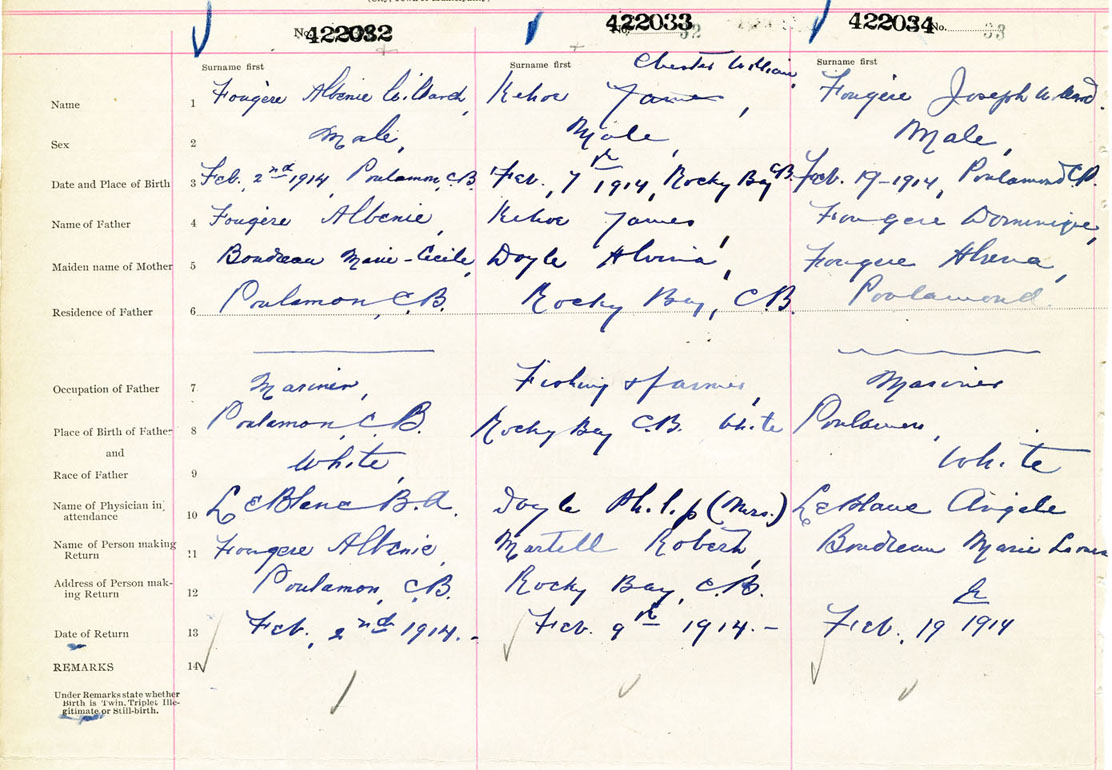 No. 422032 No. 422033 32 422034 No. 33
Surname first Surname first Chester William Surname first
Name 1 Fougère Albenie Willard, Kehoe James, Fougère Joseph
Sex 2 Male, Male, Male,
Date and Place of Birth 3 Feb. 2nd 1914, Poulamon, C.B. Feb. 7th 1914, Rocky Bay C.B. Feb. 19-1914, Poulamond C.B.
Name of Father 4 Fougère Albenie, Kehoe James, Fougere Dominique,
Maiden name of Mother 5 Boudreau Marie-Cecile, Doyle Alvina, Fougere
Residence of Father 6 Poulamon, C.B. Rocky Bay, C.B. Poulamond.
Occupation of Father 7 Mariner, Fishing & farmer, Mariner
Place of Birth of Father 8 Poulamon, C.B. Rocky Bay C.B. White
and
Race of Father 9 White, White
Name of Physician in attendance 10 LeBlanc B.A. Doyle Philip (Mrs.) LeBlanc Angele
Name of Person making Return 11 Fougere Albenie, Martell Robert, Boudreau Marie Louise
Address of Person making Return 12 Poulamon, C.B. Rocky Bay, C.B.
Date of Return 13 Feb. 2nd 1914.- Feb. 9th 1914.- Feb. 19 1914
REMARKS 14
Under Remarks state whether
Birth is Twin, Triplet, Ille-
gitimate or Still-birth.